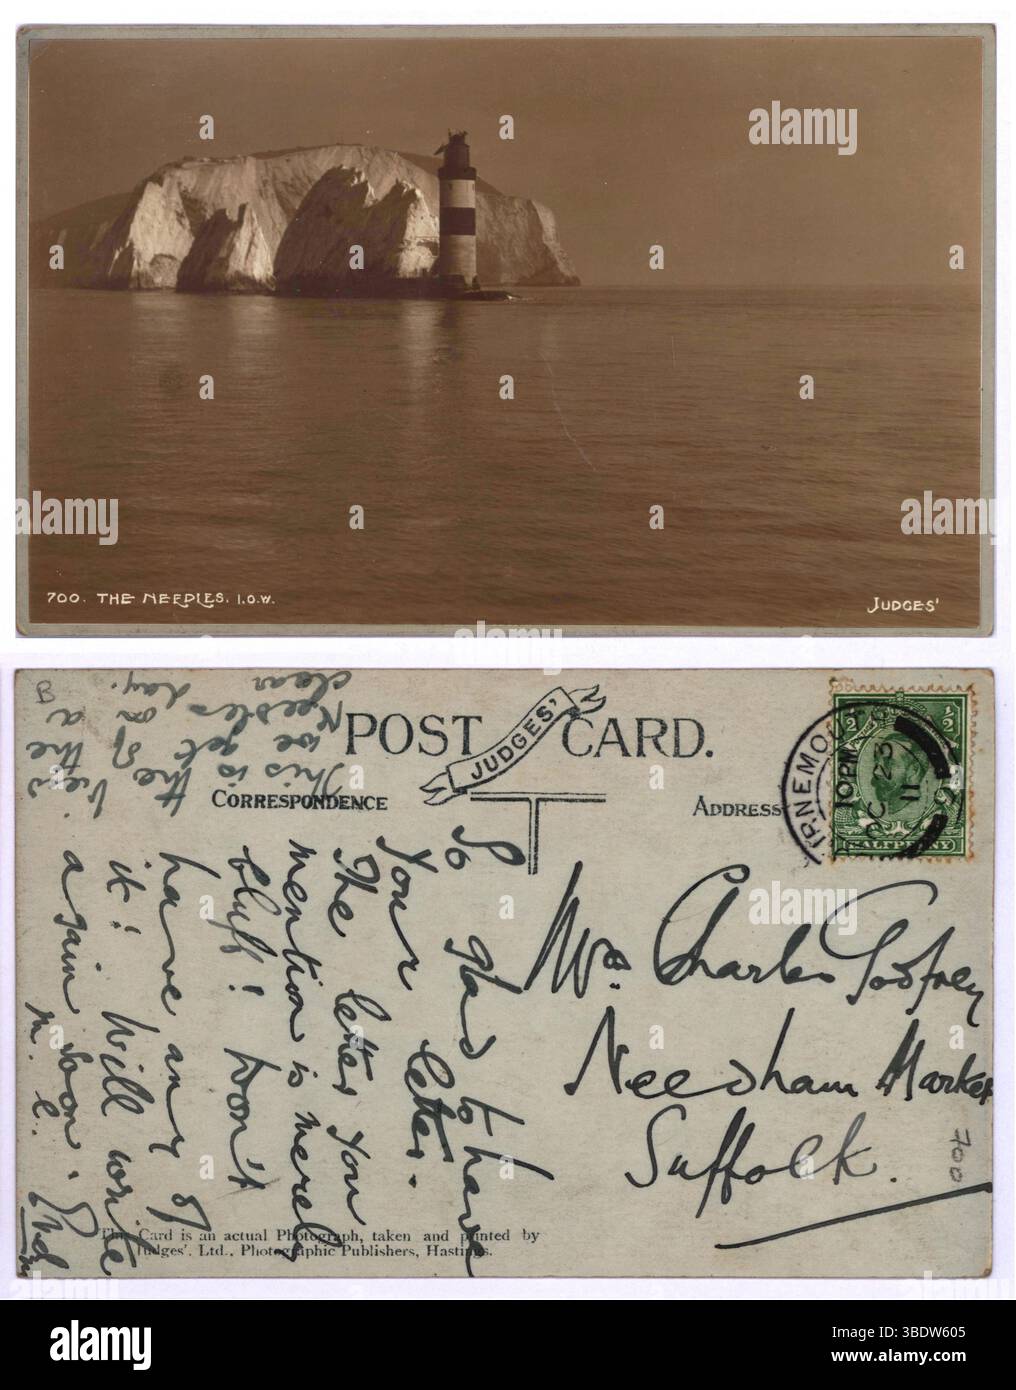 700. THE NEEDLES. I.O.W.
JUDGES'
B
POST CARD.
JUDGES'
CORRESPONDENCE
ADDRESS
This is the
view we get of the
Needles on a
clear day.
So glad to have
your letter.
The letter you
mention is merely
bluff! Don't
have any of
it! Will write
again soon.
M. C.
10 PM
OC 23
11
½ ½
HALFPENNY
Mrs. Charles Godfrey
Needham Market
Suffolk.
700
This Card is an actual Photograph, taken and printed by
Judges', Ltd., Photographic Publishers, Hastings.
alamy
Image ID: 3BDW605
www.alamy.com